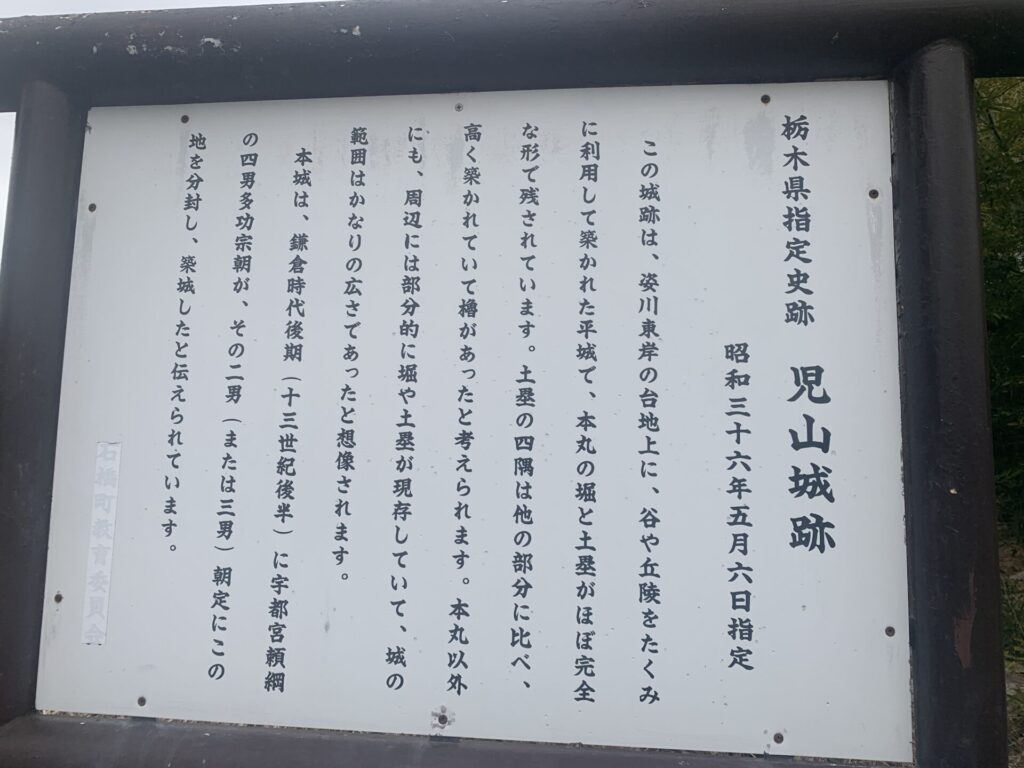 栃木県指定史跡 児山城跡
昭和三十六年五月六日指定
この城跡は、姿川東岸の台地上に、谷や丘陵をたくみ
に利用して築かれた平城で、本丸の堀と土塁がほぼ完全
な形で残されています。土塁の四隅は他の部分に比べ、
高く築かれていて櫓があったと考えられます。本丸以外
にも、周辺には部分的に堀や土塁が現存していて、城の
範囲はかなりの広さであったと想像されます。
本城は、鎌倉時代後期（十三世紀後半）に宇都宮頼綱
の四男多功宗朝が、その二男（または三男）朝定にこの
地を分封し、築城したと伝えられています。
石橋町教育委員会